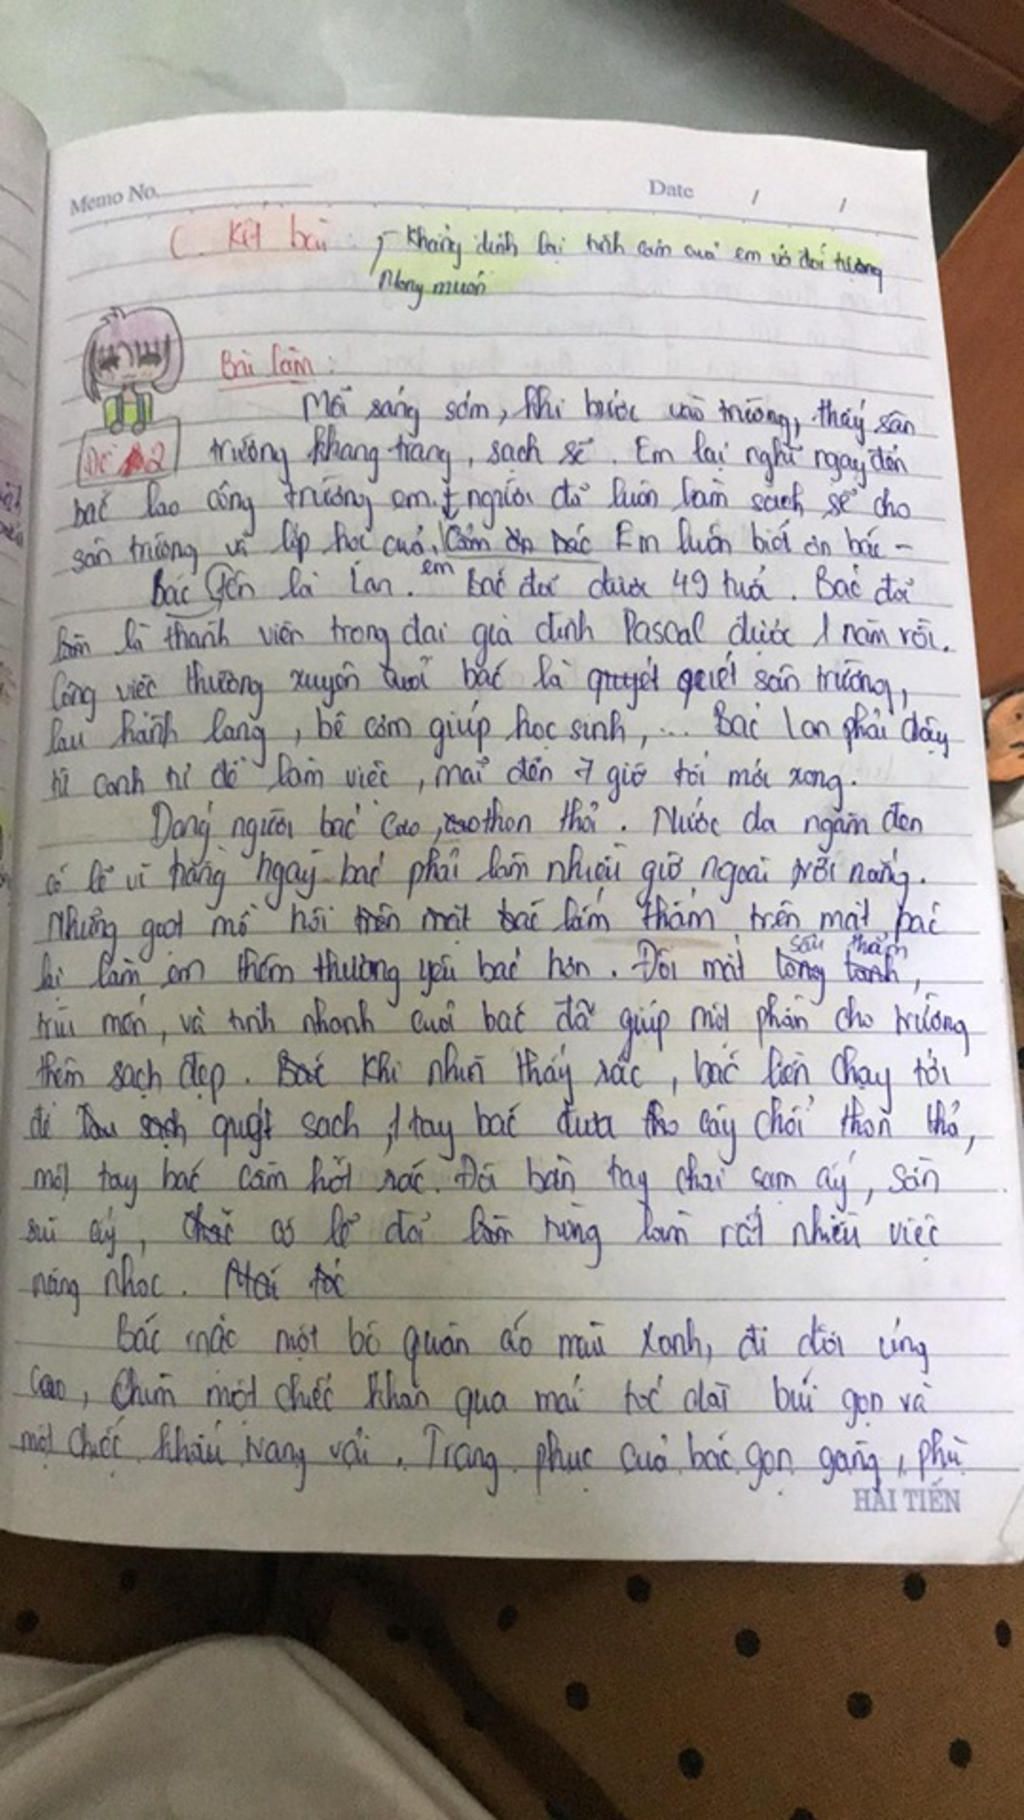 Memo No.
Date / /
C. Kết bài: - Khẳng định lại tình cảm của em với đối tượng
Mong muốn
Bài làm:
Mỗi sáng sớm, khi bước vào trường, thấy sân
Đề 2
trường khang trang, sạch sẽ. Em lại nghĩ ngay đến
bác lao công trường em. người đã luôn làm sạch sẽ cho
sân trường và lớp học của em. Cảm ơn bác Em luôn biết ơn bác
Bác tên là Lan. Bác đã được 49 tuổi. Bác đã
làm là thành viên trong đại gia đình Pascal được 1 năm rồi.
Công việc thường xuyên của bác là quyét quét sân trường,
lau hành lang, bê cơm giúp học sinh, ... Bác Lan phải dậy
từ canh tư để làm việc, mãi đến 7 giờ tối mới xong.
Dáng người bác cao, thon thả. Nước da ngăm đen
có lẽ vì hằng ngày bác phải làm nhiều giờ ngoài trời nắng.
Những giọt mồ hôi trên mặt bác lấm thấm trên mặt bác
lại làm em thêm thương yêu bác hơn. Đôi mắt long lanh,
sâu thẳm
trìu mến, và tinh nhanh của bác đã giúp một phần cho trường
thêm sạch đẹp. Bác Khi nhìn thấy rác, bác liền chạy tới
để lau sạch quét sạch, 1 tay bác đưa cây chổi thon thả,
một tay bác cầm hót rác. Đôi bàn tay chai sạm ấy, sần
sùi ấy, chắc có lẽ đã làm từng làm rất nhiều việc
nặng nhọc. Mái tóc
Bác mặc một bộ quần áo màu xanh, đi đôi ủng
cao, chùm một chiếc khăn qua mái tóc dài búi gọn và
một chiếc khẩu trang vải. Trang phục của bác gọn gàng, phù
HẢI TIẾN